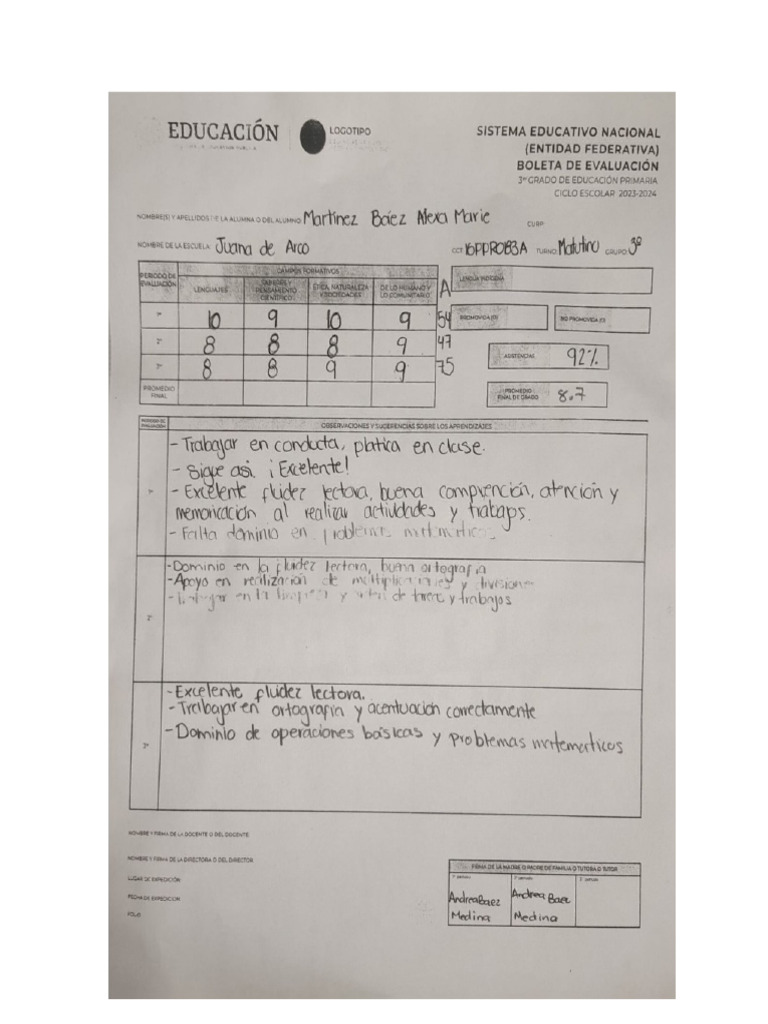 EDUCACIÓN
LOGOTIPO
SISTEMA EDUCATIVO NACIONAL
(ENTIDAD FEDERATIVA)
BOLETA DE EVALUACIÓN
3er GRADO DE EDUCACIÓN PRIMARIA
CICLO ESCOLAR 2023-2024
NOMBRE(S) Y APELLIDOS DE LA ALUMNA O DEL ALUMNO Martínez Báez Alexa Marie CURP
NOMBRE DE LA ESCUELA: Juana de Arco CCT 16PPR0183A TURNO Matutino GRUPO 3º
PERIODO DE EVALUACIÓN
CAMPOS FORMATIVOS
LENGUAJES
SABERES Y PENSAMIENTO CIENTÍFICO
ÉTICA, NATURALEZA Y SOCIEDADES
DE LO HUMANO Y LO COMUNITARIO
A
LENGUA INDÍGENA
1º 10 9 10 9 54
PROMOVIDA (O)
NO PROMOVIDA (O)
2º 8 8 8 9 47
ASISTENCIAS 92%
3º 8 8 9 9 75
PROMEDIO FINAL
PROMEDIO FINAL DE GRADO 8.7
PERIODO DE EVALUACIÓN
OBSERVACIONES Y SUGERENCIAS SOBRE LOS APRENDIZAJES
1º
- Trabajar en conducta, platica en clase.
- Sigue asi ¡Excelente!
- Excelente fluidez lectora, buena comprención, atención y
memoricación al realizar actividades y trabajos.
- Falta dominio en problemas matemáticos
2º
- Dominio en la fluidez lectora, buena ortografia
- Apoyo en realización de multiplicaciones y divisiones
- Trabajar en la limpieza y de tarea y trabajos
3º
- Excelente fluidez lectora.
- Trabajar en ortografía y acentuación correctamente
- Dominio de operaciones básicas y problemas matematicos
NOMBRE Y FIRMA DE LA DOCENTE O DEL DOCENTE
NOMBRE Y FIRMA DE LA DIRECTORA O DEL DIRECTOR
LUGAR DE EXPEDICIÓN
FECHA DE EXPEDICIÓN
FOLIO
FIRMA DE LA MADRE O PADRE DE FAMILIA O TUTORA O TUTOR
1º periodo 2º periodo 3º periodo
Andrea Baez Andrea Baez
Medina Medina